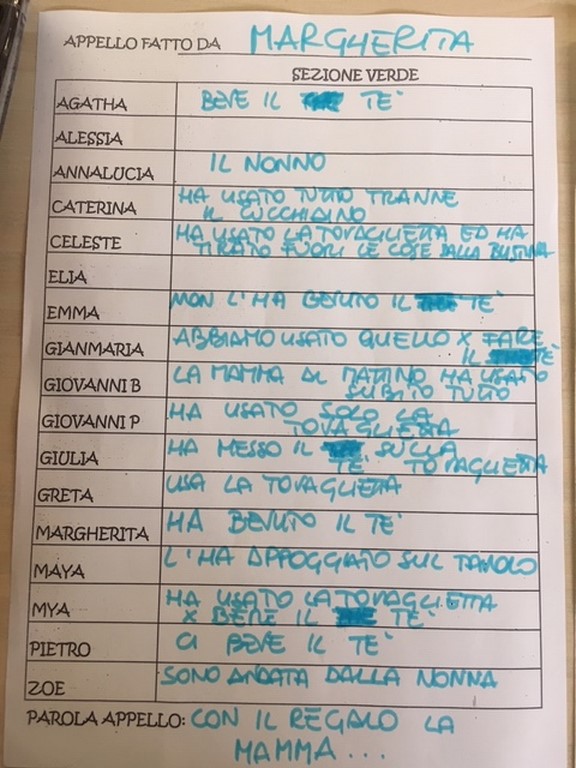 APPELLO FATTO DA MARGHERITA
SEZIONE VERDE
AGATHA BEVE IL TE'
ALESSIA
ANNALUCIA IL NONNO
CATERINA HA USATO TUTTO TRANNE
IL CUCCHIAINO
CELESTE HA USATO LA TOVAGLIETTA ED HA
TIRATO FUORI LE COSE DALLA BUSTINA
ELIA
EMMA NON L'HA BEVUTO IL TE'
GIANMARIA ABBIAMO USATO QUELLO X FARE
IL TE'
GIOVANNI B LA MAMMA AL MATTINO HA USATO
SUBITO TUTTO
GIOVANNI P HA USATO SOLO LA
TOVAGLIETTA
GIULIA HA MESSO IL SULLA
TE' TOVAGLIETTA
GRETA USA LA TOVAGLIETTA
MARGHERITA HA BEVUTO IL TE'
MAYA L'HA APPOGGIATO SUL TAVOLO
MYA HA USATO LA TOVAGLIETTA
X BERE IL TE'
PIETRO CI BEVE IL TE'
ZOE SONO ANDATA DALLA NONNA
PAROLA APPELLO: CON IL REGALO LA
MAMMA...